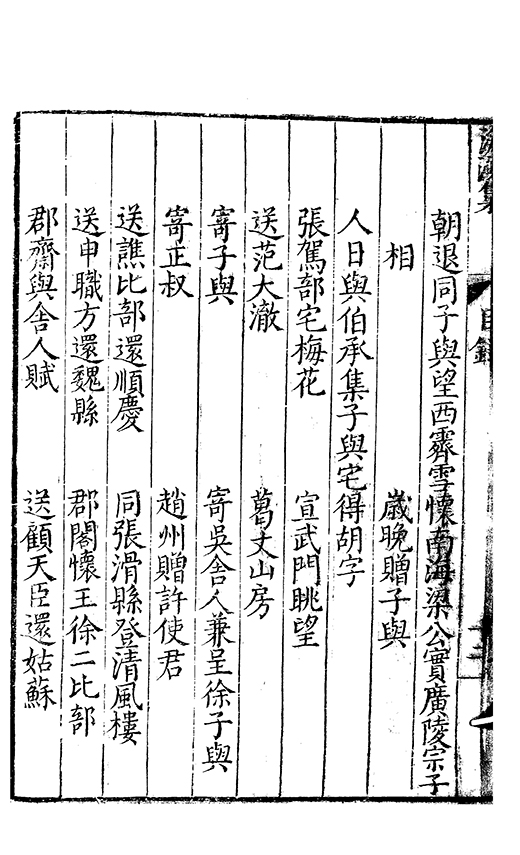 滄溟集
目錄
朝退同子與望西霽雪懷南海梁公實廣陵宗子
相　歲晚贈子與
人日與伯承集子與宅得胡字
張駕部宅梅花　宣武門眺望
送范大澈　葛丈山房
寄子與　寄吳舍人兼呈徐子與
寄正叔　趙州贈許使君
送譙比部還順慶　同張滑縣登清風樓
送申職方還魏縣　郡閣懷王徐二比部
郡齋與舍人賦　送顧天臣還姑蘇